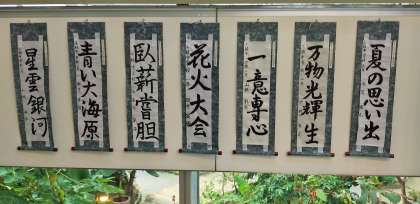 夏の思い出
万物光輝生
一意専心
花火大会
臥薪嘗胆
青い大海原
星雲銀河